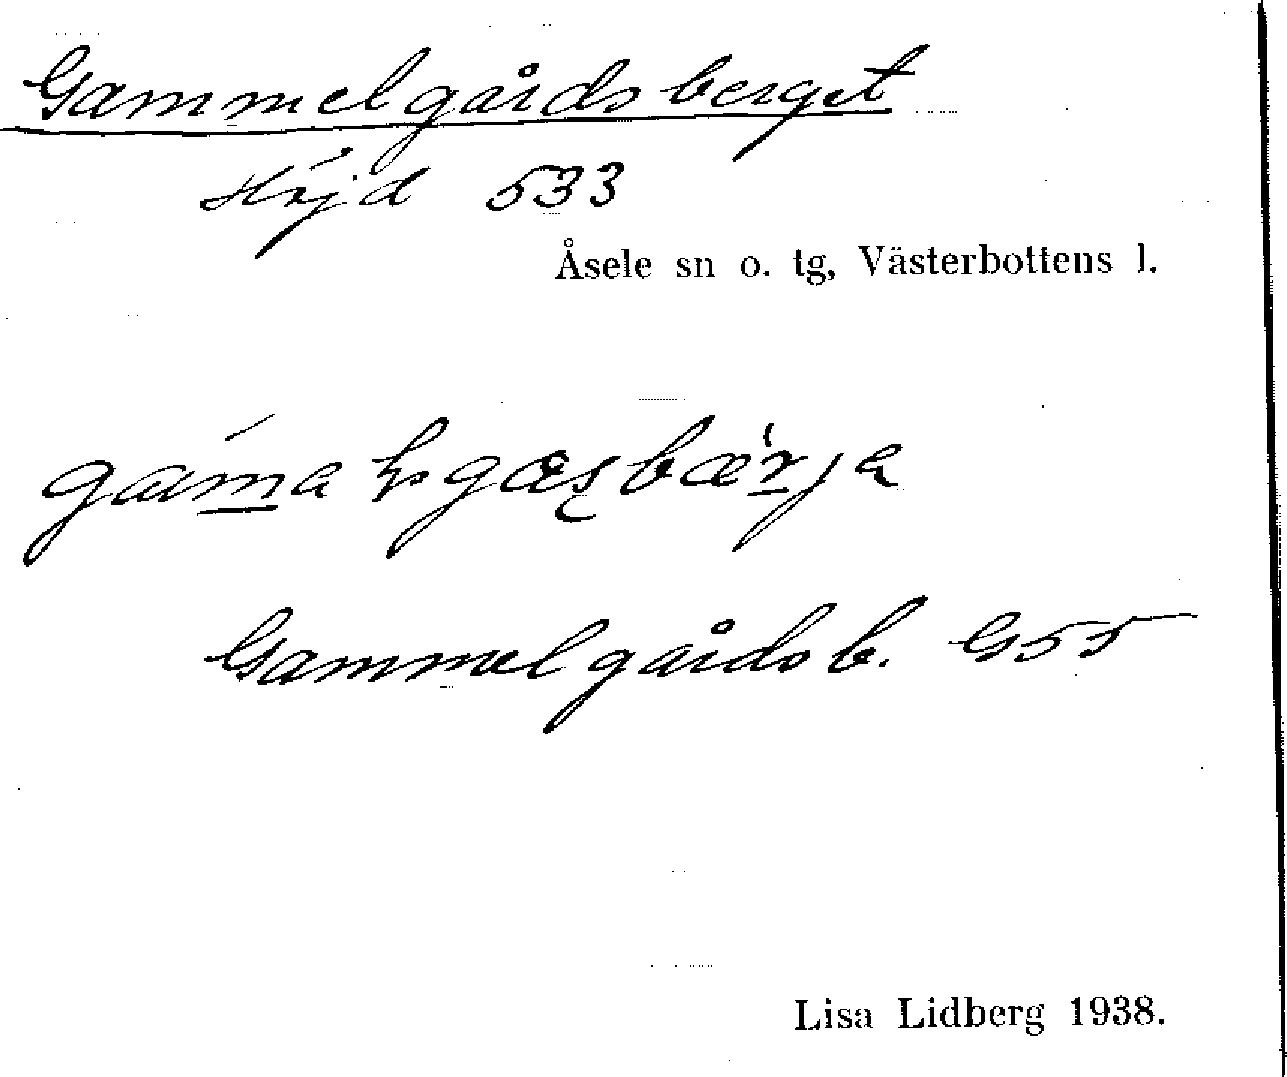 Gammelgårdsberget
Höjd 533
Åsele sn o. tg, Västerbottens l.
Gammelgårdsb. G55
Lisa Lidberg 1938.